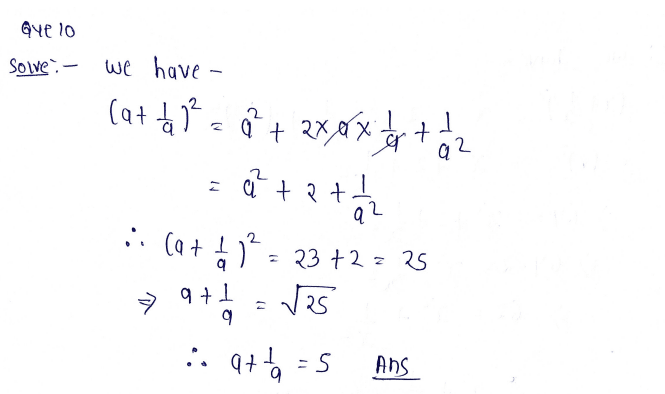 Que 10
Solve:- we have -
(a + 1/a)² = a² + 2 × a × 1/a + 1/a²
= a² + 2 + 1/a²
∴ (a + 1/a)² = 23 + 2 = 25
⇒ a + 1/a = √25
∴ a + 1/a = 5 Ans